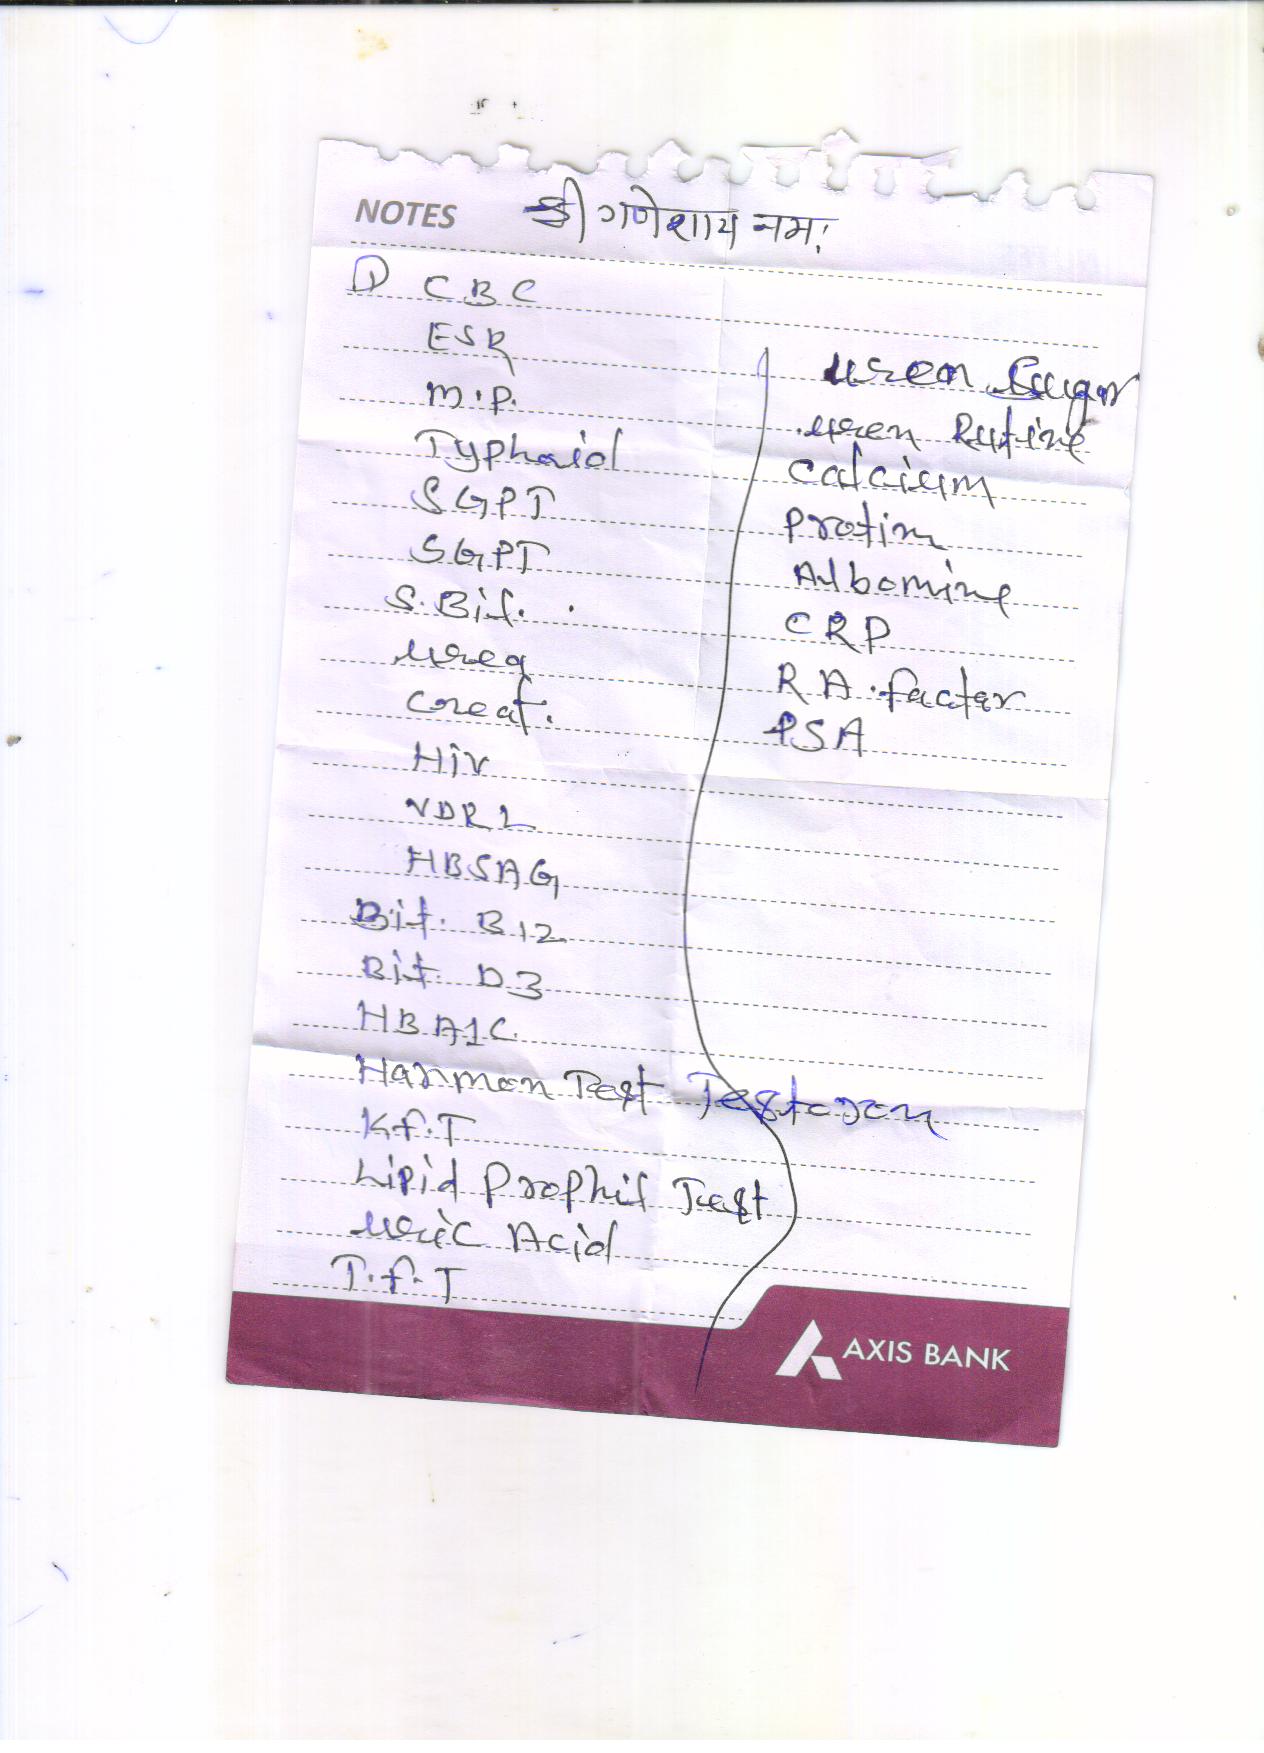 NOTES श्री गणेशाय नमः
① CBC
ESR
M.P.
Typhoid
SGPT
SGPT
S.Bil.
urea
Creat.
Hiv
VDRL
HBSAG
Bit. B12
Bit. D3
HBA1C
Harmon Test Testoron
K.f.T
Lipid Prophil Test
uric Acid
T.f.T
uren Sugar
uren Rutine
Calcium
Protin
Albomine
CRP
RA.factar
PSA
AXIS BANK